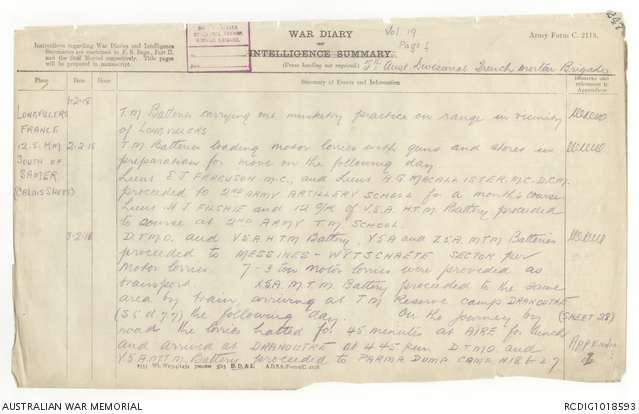 WAR DIARY
OF
INTELLIGENCE SUMMARY.
(Erase heading not required)
Instructions regarding War Diaries and Intelligence
Summaries are contained in F. S. Regs., Part II.
and the Staff Manual respectively. Title pages
will be prepared in manuscript.
Vol. 19
Page 1
Army Form C. 2118.
5th Aust. Divisional Trench Mortar Brigade
Place
Date
Hour
Summary of Events and Information
Remarks and references to Appendices
LONGVILLERS
FRANCE
12.5 KM
SOUTH OF
SAMER
(CALAIS SHEET)
1-2-18
T.M. Batteries carrying out musketry practice on range in vicinity
of LONGVILLERS
2-2-18
T.M. Batteries loading motor lorries with guns and stores in
preparation for move on the following day.
Lieut E J FERGUSON M.C., and Lieut A G MACALLISTER, M.C. D.C.M.
proceeded to 2ND ARMY ARTILLERY SCHOOL for a month's course
Lieut H J and 12 O/R of V5A. H.T.M Battery proceeded
to course at 2ND ARMY T.M SCHOOL.
3-2-18
D.T.M.O. and V5A H.T.M Battery, Y5A and Z5A M.T.M Batteries
proceeded to MESSINES - WYTSCHAETE SECTOR per
Motor lorries. 7 - 3 ton motor lorries were provided as
transport X5A M.T.M Battery proceeded to the same
area by train, arriving at T.M Reserve camp DRANOUTRE
the following day. On the journey by
road the lorries halted for 45 minutes at AIRE for lunch
and arrived at DRANOUTRE at 4.45 p.m. D.T.M.O. and
M.T.M. Battery proceeded to PARMA DUMP CAMP
(SHEET 28)
Appendix
1
AUSTRALIAN WAR MEMORIAL
RCDIG1018593